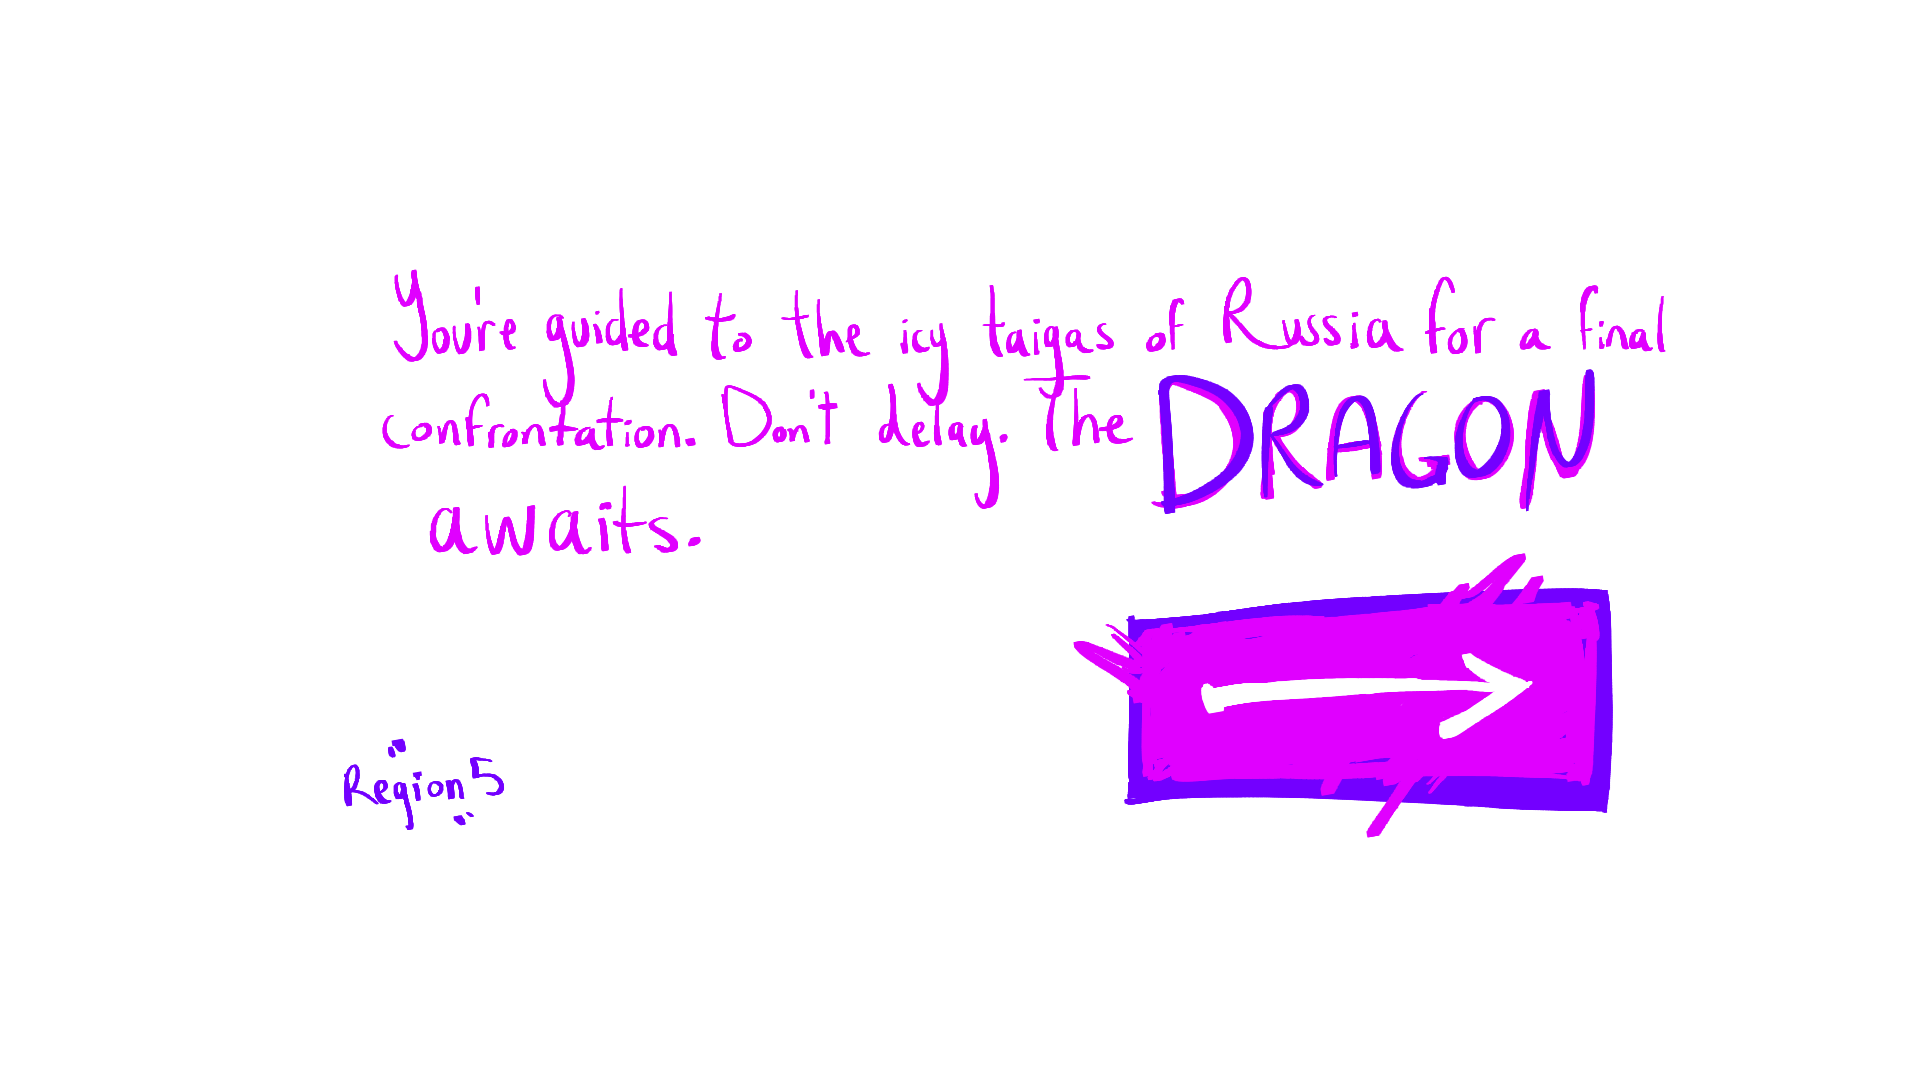 You're guided to the icy taigas of Russia for a final
confrontation. Don't delay. The DRAGON
awaits.
Region 5